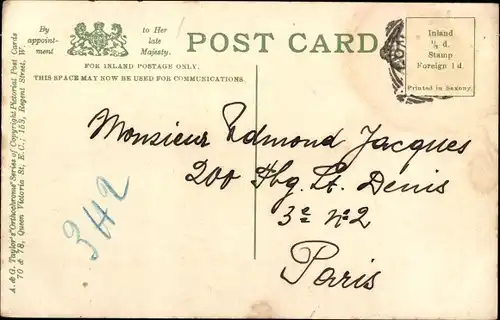 By appoint-
ment
to Her
late
Majesty.
POST CARD
FOR INLAND POSTAGE ONLY,
THIS SPACE MAY NOW BE USED FOR COMMUNICATIONS.
Inland
½ d.
Stamp
Foreign 1 d.
Printed in Saxony.
A. & G. Taylor's "Orthochrome" Series of Copyright Pictorial Post Cards
70 & 78, Queen Victoria St, E.C.; 153, Regent Street, W.
Monsieur Edmond Jacques
200 Fbg. St. Denis
3e no 2
Paris
342